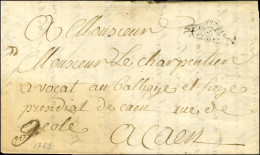 A Monsieur
Monsieur Le charpentier
avocat au balliage et siege
presidial de caen rue de
Geole
A Caen
1782